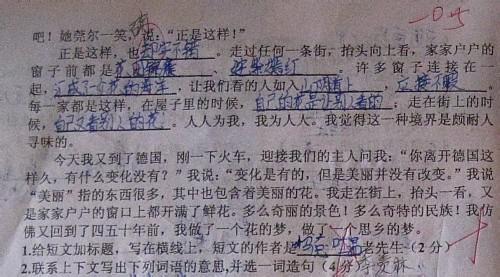 吧！她莞尔一笑，说：“正是这样！”
正是这样，也确实不错。走过任何一条街，抬头向上看，家家户户的
窗子前都是花团锦簇、姹紫嫣红。许多窗子连接在一
起，汇成了一个花的海洋，让我们看的人如入山阴道上，应接不暇。
每一家都是这样，在屋子里的时候，自己的花是让别人看的；走在街上的时
候，自己又看别人的花。人人为我，我为人人。我觉得这一种境界是颇耐人
寻味的。
今天我又到了德国，刚一下火车，迎接我们的主人问我：“你离开德国这
样久，有什么变化没有？”我说：“变化是有的，但是美丽并没有改变。”我说
“美丽”指的东西很多，其中也包含着美丽的花。我走在街上，抬头一看，又
是家家户户的窗口上都开满了鲜花。多么奇丽的景色！多么奇特的民族！我仿
佛又回到了四五十年前，我做了一个花的梦，做了一个思乡的梦。
1.给短文加标题，写在横线上，短文的作者是老先生（2分）
2.联系上下文写出下列词语的意思，并选一词造句（4分）